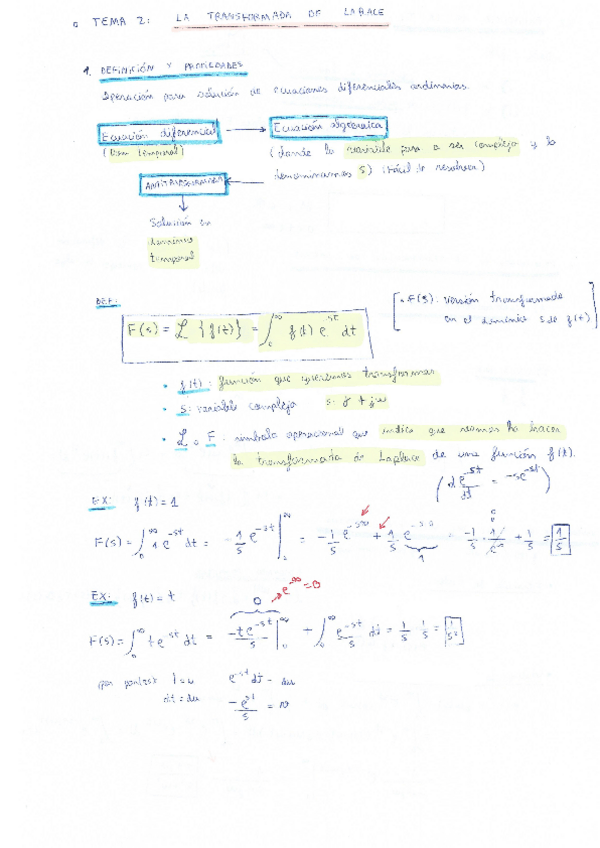 TEMA 2: LA TRANSFORMADA DE LAPLACE
1. DEFINICIÓN Y PROPIEDADES
Operación para solución de ecuaciones diferenciales ordinarias.
Ecuación diferencial → Ecuación algebraica
(Dom temporal) (donde la variable pasa a ser compleja y la
denominamos s) (fácil de resolver)
ANTITRANSFORMADA
Solución en
dominio
temporal
DEF:
F(s) = L {f(t)} = ∫₀^∞ f(t) e^-st dt
F(s): versión transformada
en el dominio s de f(t)
• f(t): función que queremos transformar
• S: variable compleja s:
• L o F: símbolo operacional que indica que vamos a hacer
la transformada de Laplace de una función f(t).
(d e^-st / dt = -se^-st)
EX: f(t) = 1
F(s) = ∫₀^∞ 1 e^-st dt = -1/s e^-st |₀^∞ = -1/s e^-s∞ + 1/s e^-s·0 = -1/s · 1/e^∞ + 1/s = 1/s
0
1
EX: f(t) = t
0 → e^-∞ = 0
F(s) = ∫₀^∞ t e^-st dt = -te^-st/s |₀^∞ + ∫₀^∞ e^-st/s dt = 1/s · 1/s = 1/s²
por partes: t = u e^-st dt = dv
dt = du -e^-st/s = v